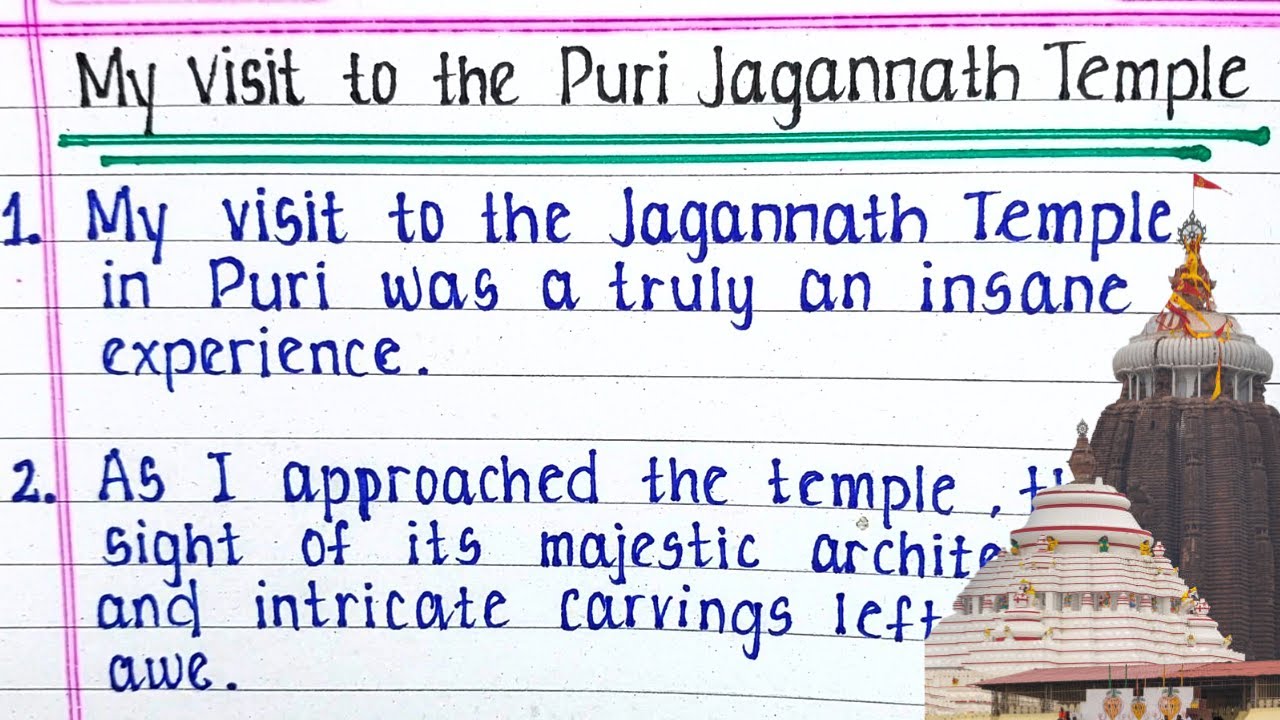 My visit to the Puri Jagannath Temple
1. My visit to the Jagannath Temple
in Puri was a truly an insane
experience.
2. As I approached the temple,
sight of its majestic
and intricate carvings left
awe.